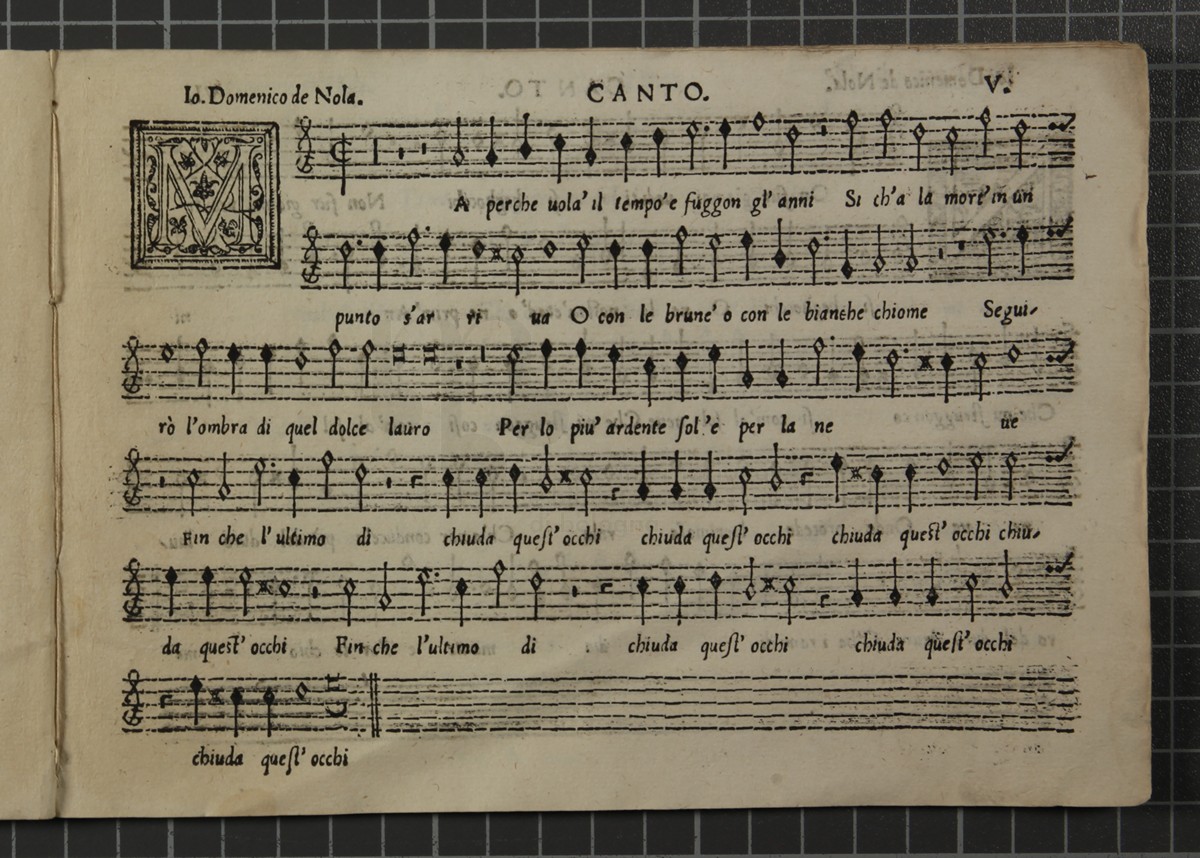 Io. Domenico de Nola. CANTO. V.
M
A perche uola' il tempo'e fuggon gl' anni Si ch'a la mort' in un
punto s'ar ri ua O con le brune' o con le bianche chiome Segui-
rò l'ombra di quel dolce lauro Per lo piu' ardente ſol'e per la ne ue
Fin che l'ultimo di chiuda queſt' occhi chiuda queſt' occhi chiuda queſt' occhi chiu-
da queſt' occhi Fin che l'ultimo di chiuda queſt' occhi chiuda queſt' occhi
chiuda queſt' occhi